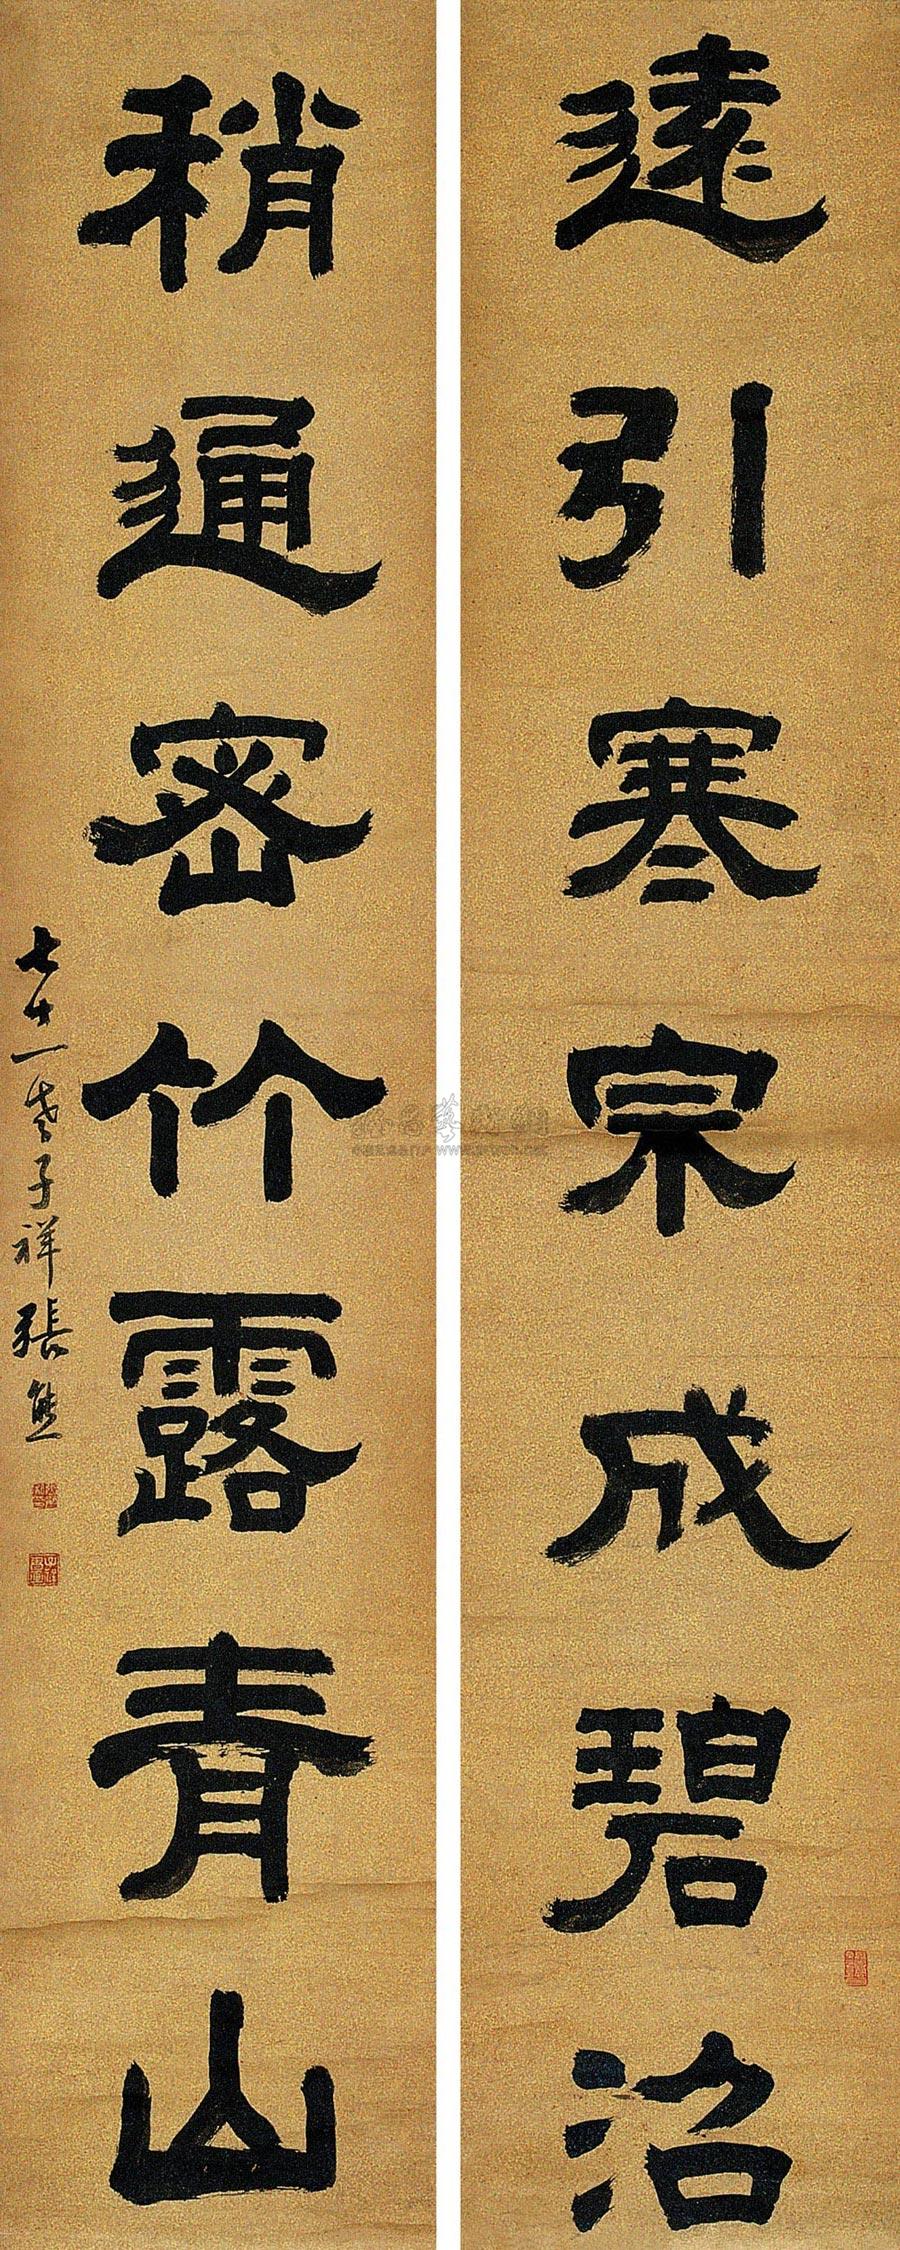 遠引寒宗成碧沼
稍通密竹露青山
七十一叟子祥張熊